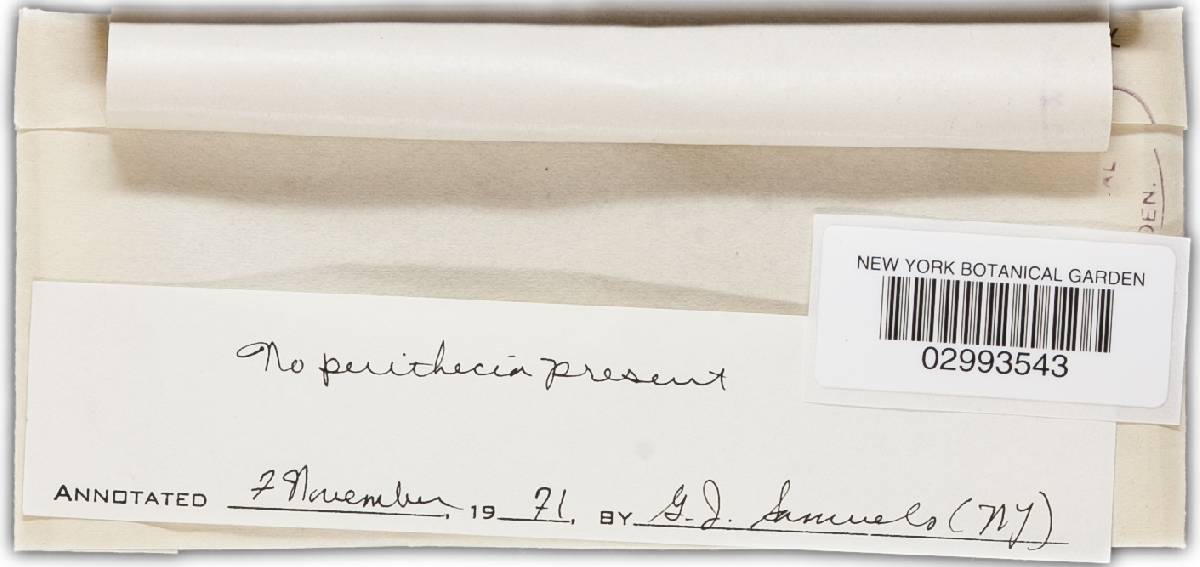 DEN.
NEW YORK BOTANICAL GARDEN
02993543
No perithecia present
ANNOTATED 7 November, 1971, BY G.J. Samuels (NY)